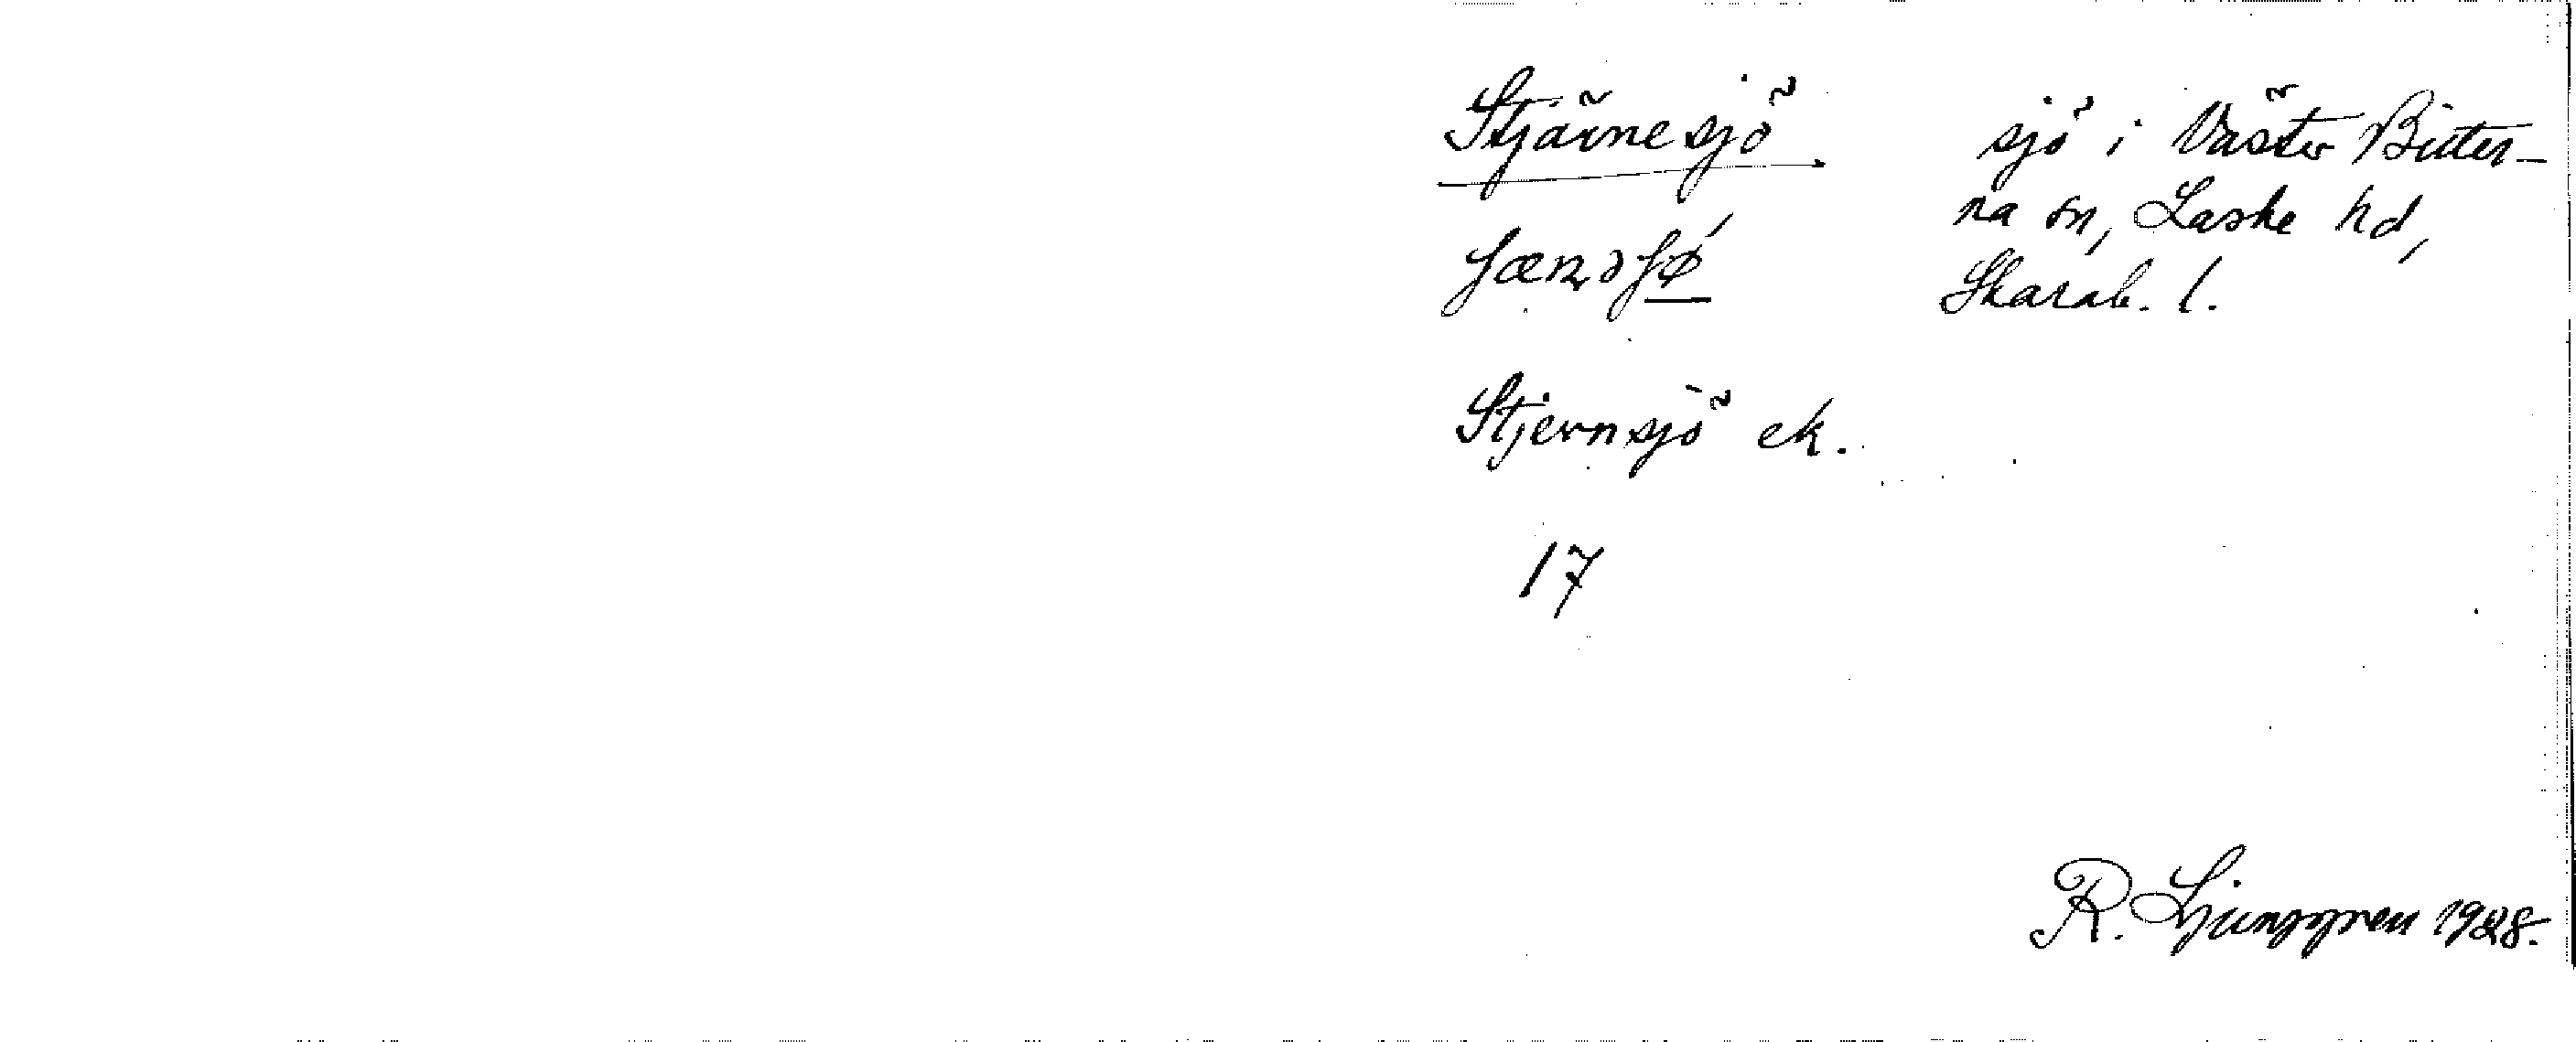 Stjärnesjö
sjö i Väster Bitter-
na sn, Laske hd,
Skarab. l.
ʃæɳəʃǿ̷
Stjernsjö ek.
17
R. Ljunggren 1928.